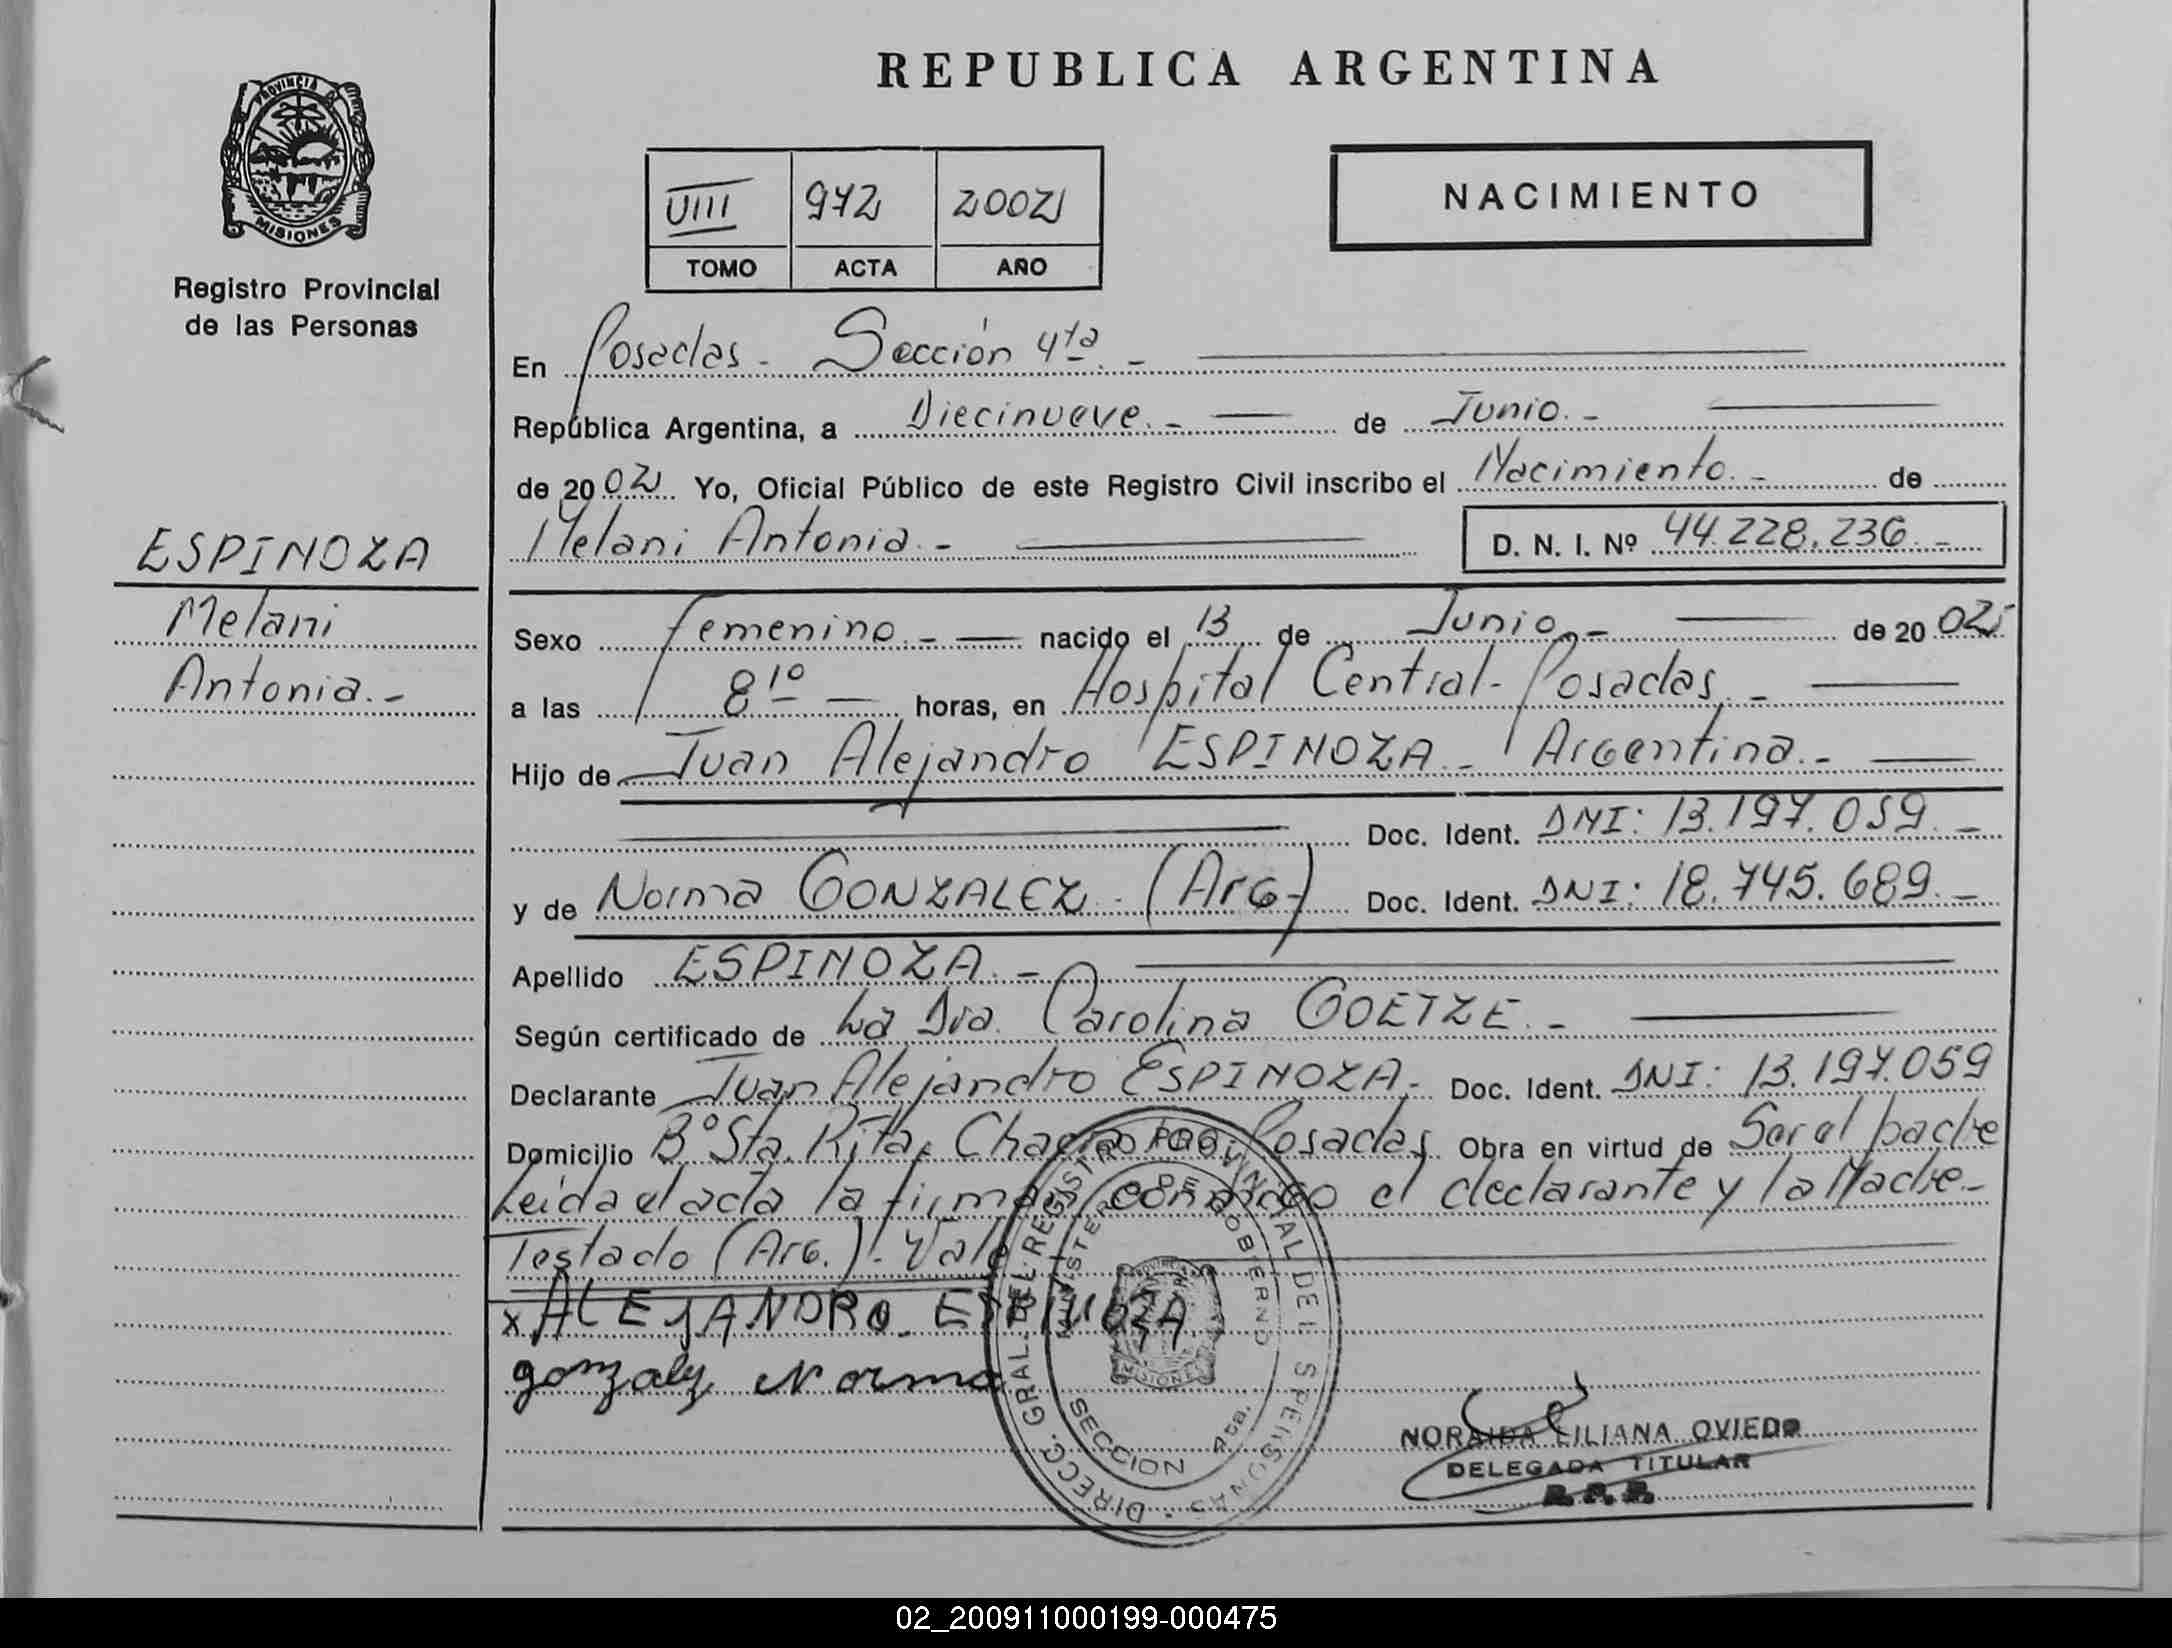 REPUBLICA ARGENTINA
PROVINCIA DE
MISIONES
Registro Provincial
de las Personas
VIII 972 2002
TOMO ACTA AÑO
NACIMIENTO
En Posadas - Sección 4ta. -
República Argentina, a Diecinueve. - de Junio. -
de 2002 Yo, Oficial Público de este Registro Civil inscribo el Nacimiento. - de
Melani Antonia. - D. N. I. Nº 44.228.236. -
ESPINOZA
Melani
Antonia. -
Sexo femenino. - nacido el 13 de Junio. - de 2002
a las 8 10 horas, en Hospital Central - Posadas. -
Hijo de Juan Alejandro ESPINOZA - Argentina. -
Doc. Ident. DNI: 13.197.059. -
y de Norma GONZALEZ - (Arg.) Doc. Ident. DNI: 18.745.689. -
Apellido ESPINOZA. -
Según certificado de La Dra. Carolina GOETZE. -
Declarante Juan Alejandro ESPINOZA. - Doc. Ident. DNI: 13.197.059
Domicilio Bº Sta. Rita, Chacra Posadas. Obra en virtud de Ser el padre
Leida el acta la firman conmigo el declarante y la Madre. -
Testado (Arg.) - Vale
x ALEJANDRO ESPINOZA
gonzalez Norma
DIRECC. GRAL. DEL REGISTRO PROVINCIAL DE LAS PERSONAS
MINISTERIO DE GOBIERNO
SECCION 4ta.
NORAIDA LILIANA OVIEDO
DELEGADA TITULAR
R. P. P.
02_200911000199-000475